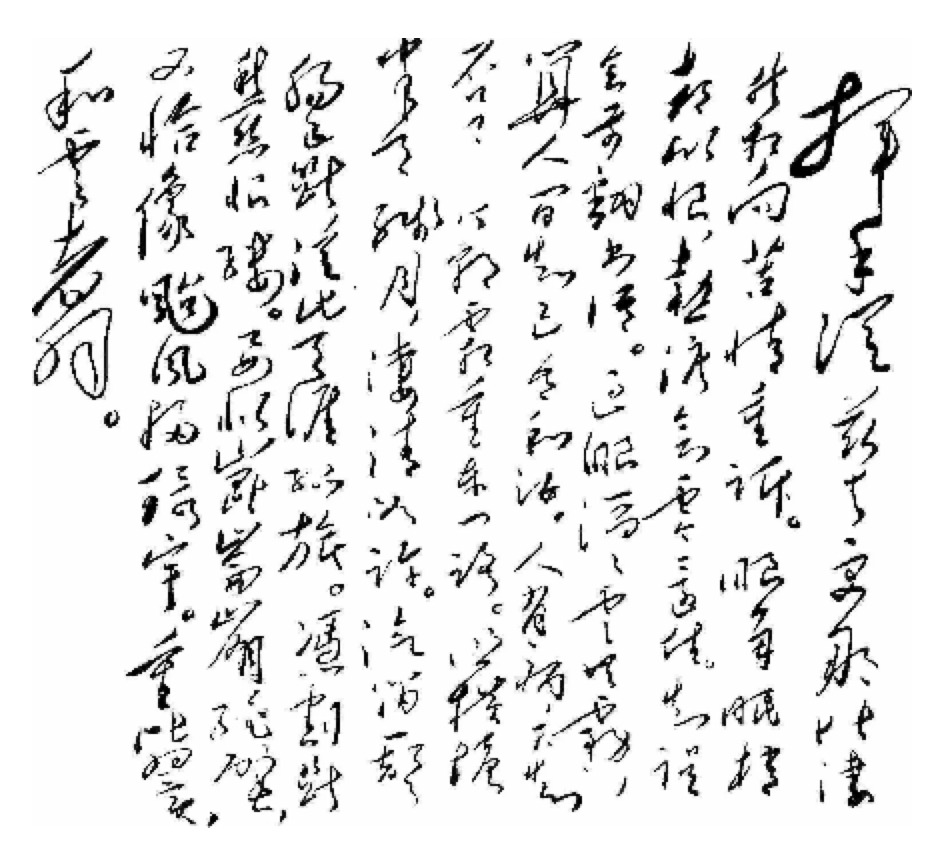 挥手从兹去更那堪凄
然相向苦情重诉。眼角眉梢
都似恨,热泪欲零还住。知误
会前翻书语。过眼滔滔云共雾,
算人间知己吾和汝。人有病,天知
否?今朝霜重东门路。照横塘
半天残月凄清如许。汽笛一声
肠已断从此天涯孤旅。凭割断
愁丝恨缕。要似崑崙崩绝壁,
又恰像颱风扫环宇。重比翼,
和云翥。